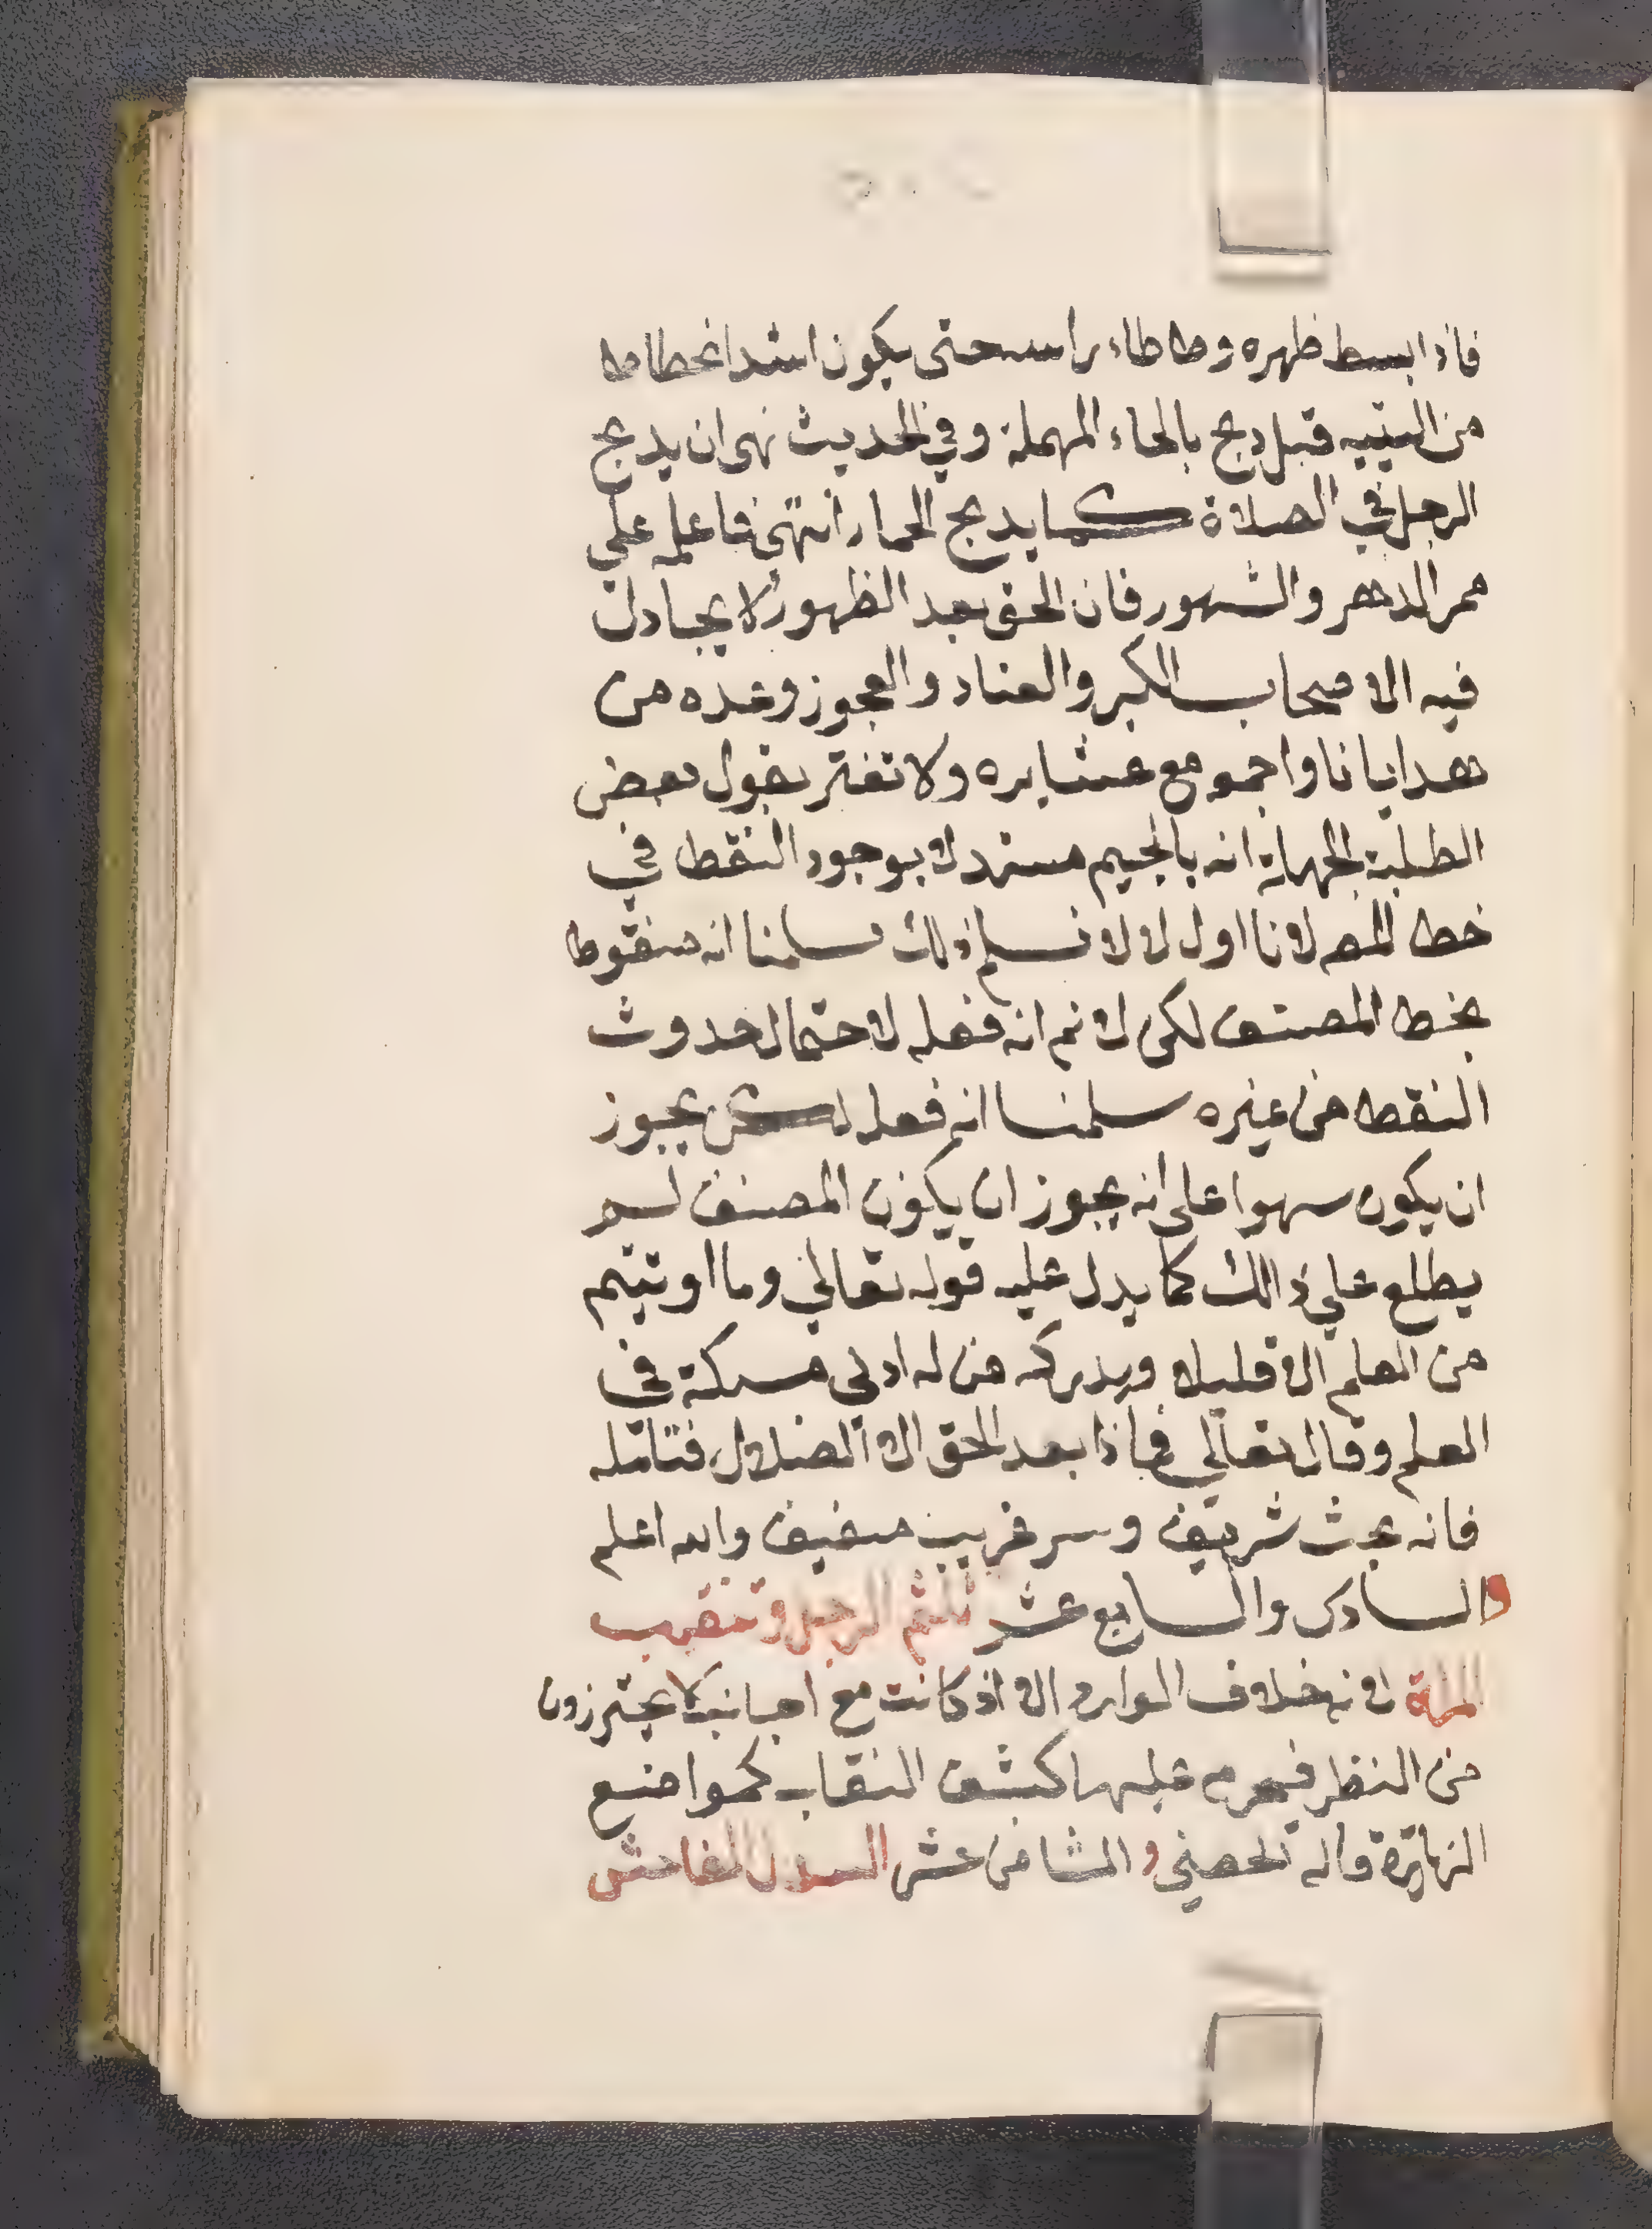 فاذا بسط ظهره وطاطاء راسه حتى يكون اشد انحطاطا
من اليتيه قيل دبح بالحاء المهملة وفي الحديث نهى ان يدبح
الرجل في الصلاة كما يدبح الحمار انتهى فاعلمه علي
ممر الدهر والشهور فان الحق بعد الظهور لا يجادل
فيه الا اصحاب الكبر والعناد والعجوز وعده من
هدايانا واجمو مع عشايره ولا تغتر بقول بعض
الطلبة الجهلة انه بالجيم مستدلا بوجود النقط في
خط المص لانا اولا لا نسلم ذلك سلمنا انه منقوط
بخط المصنف لكن لا نم انه فعله لاحتمال حدوث
النقط من غيره سلمنا انه فعله لكن يجوز
ان يكون سهوا على انه يجوز ان يكون المصنف لم
يطلع علي ذالك كما يدل عليه قوله تعالي وما اوتيتم
من العلم الا قليلا ويدركه من له ادنى مسكة في
العلم وقال تعالي فماذا بعد الحق الا الضلال فتامله
فانه بحث شريف وسر غريب منيف والله اعلم
والسادس والسابع عشر تلثم الرجل وتنقب
المراة لانه خلاف الوارد الا اذ كانت مع اجانب لا يحترزون
من النظر فيحرم عليها كشف النقاب كمواضع
الزيارة قاله الحصني والثامن عشر السدل الفاحش